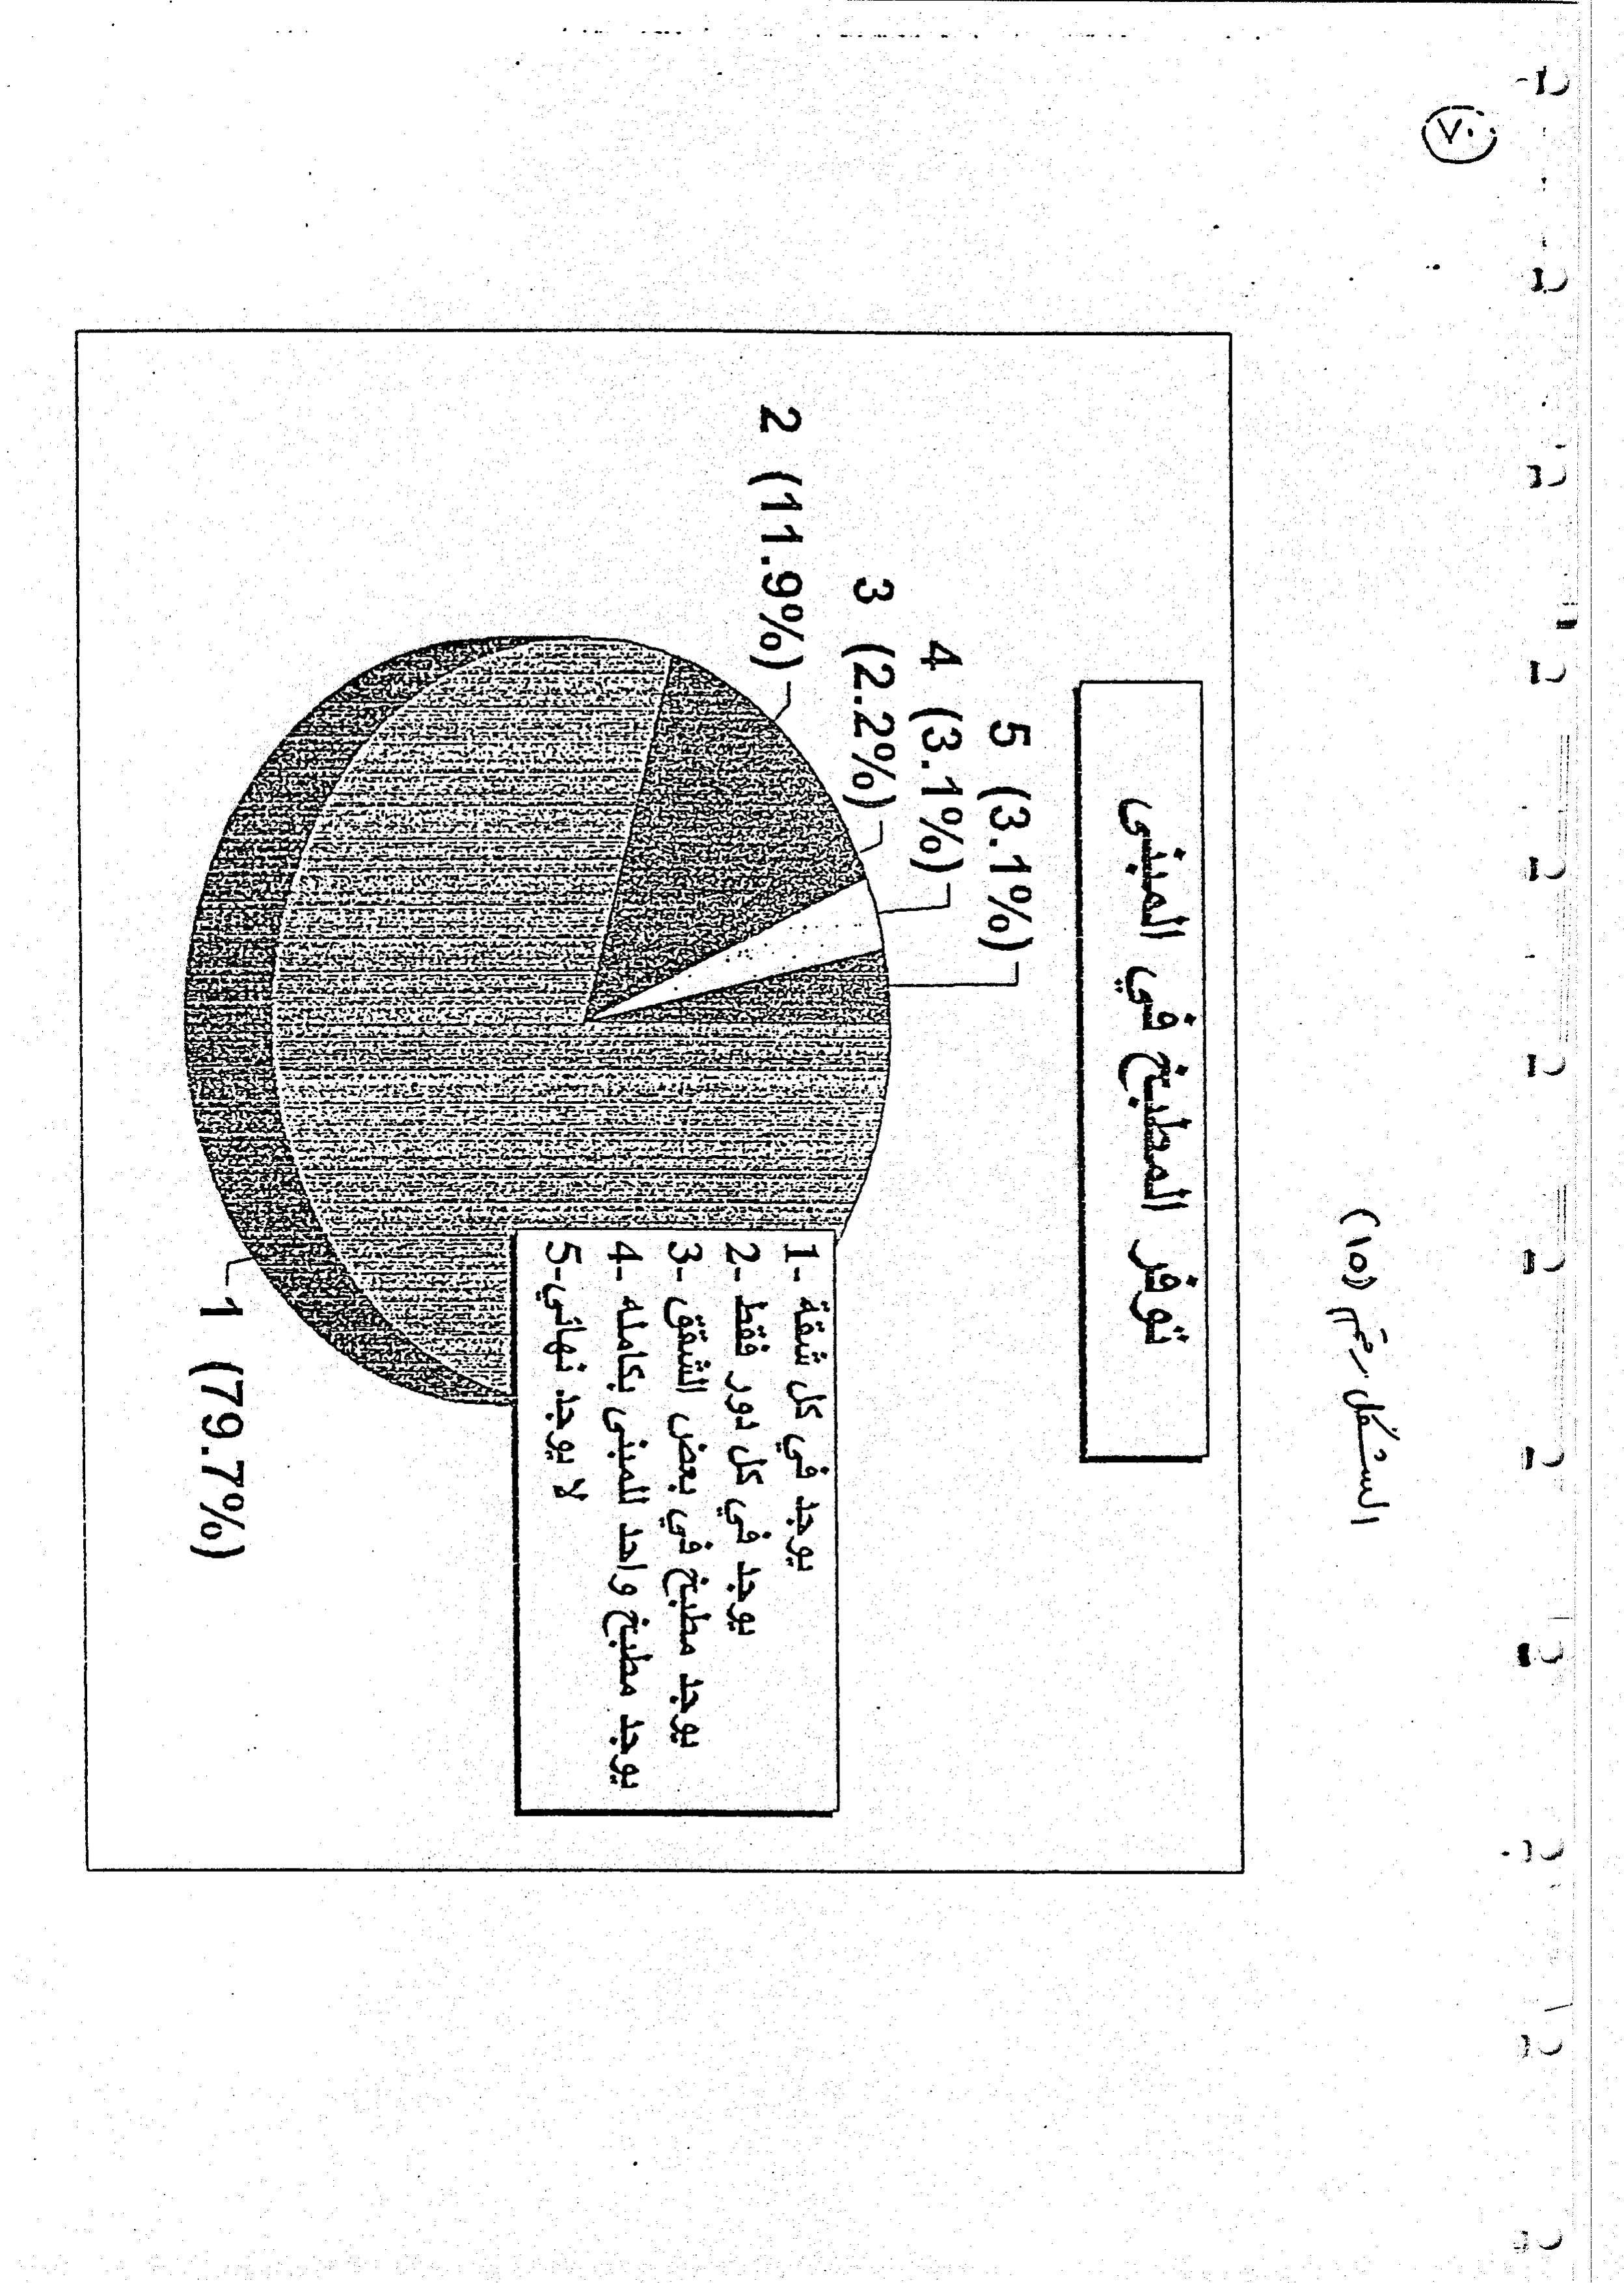 ٧٠
الشكل رقم (١٥)
توفر المطبخ في المبنى
5 (3.1%)
4 (3.1%)
3 (2.2%)
2 (11.9%)
1 (79.7%)
1- يوجد في كل شقة
2- يوجد في كل دور فقط
3- يوجد مطبخ في بعض الشقق
4- يوجد مطبخ واحد للمبنى بكامله
5- لا يوجد نهائي